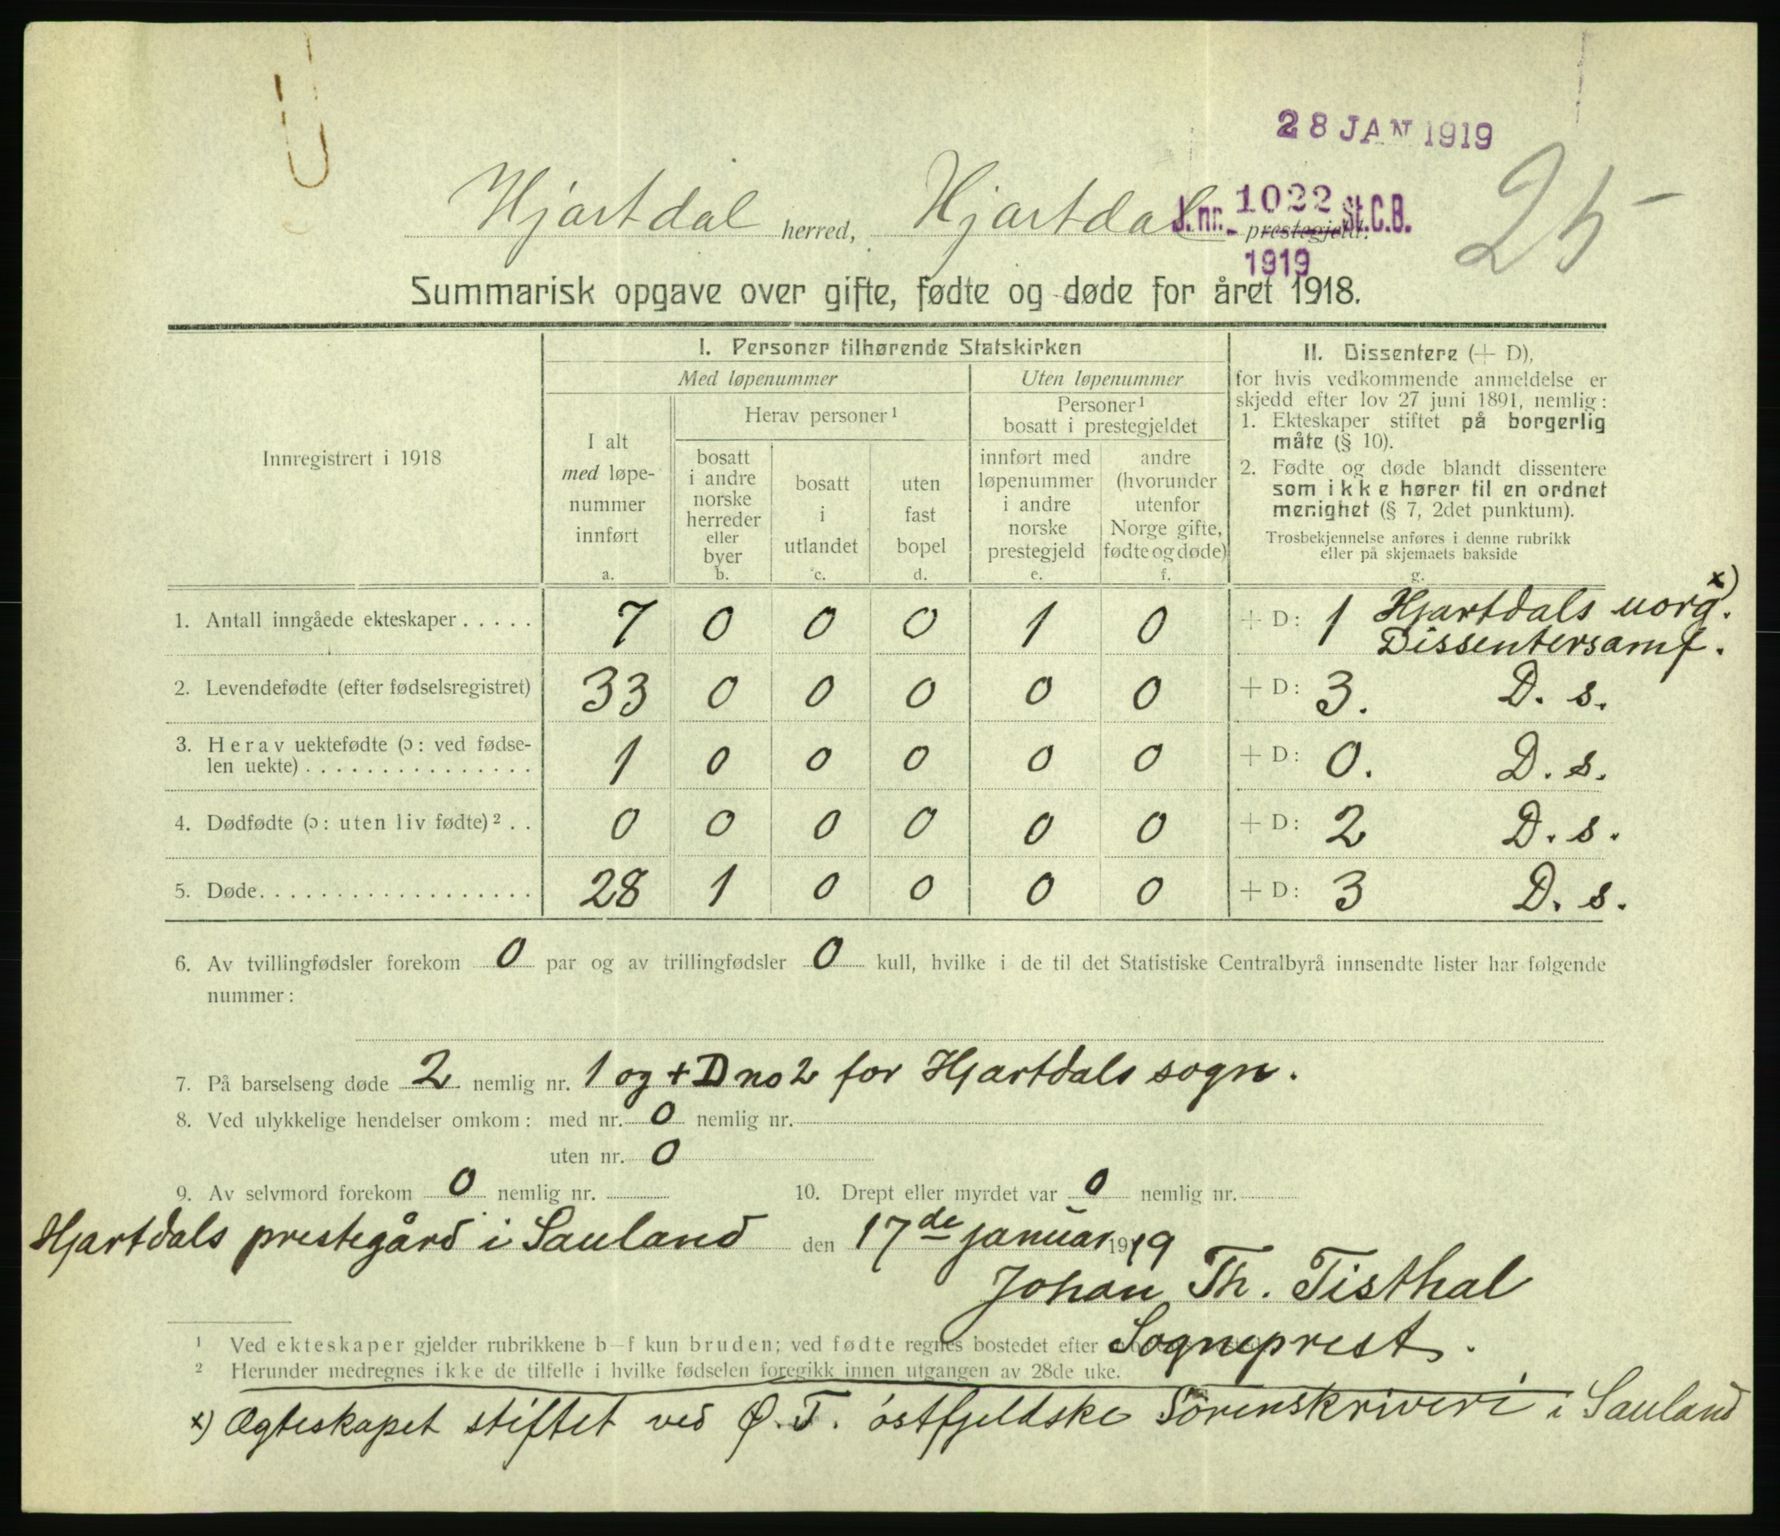 28 JAN 1919
Hjartdal herred, Hjartdal prestegjeld.
J. nr. 1022 St.C.B.
1919
25
Summarisk opgave over gifte, fødte og døde for året 1918.
Innregistrert i 1918
I. Personer tilhørende Statskirken
Med løpenummer
Uten løpenummer
I alt
med løpe-
nummer
innført
a.
Herav personer¹
bosatt
i andre
norske
herreder
eller
byer
b.
bosatt
i
utlandet
c.
uten
fast
bopel
d.
Personer¹
bosatt i prestegjeldet
innført med
løpenummer
i andre
norske
prestegjeld
e.
andre
(hvorunder
utenfor
Norge gifte,
fødte og døde)
f.
II. Dissentere (+ D),
for hvis vedkommende anmeldelse er
skjedd efter lov 27 juni 1891, nemlig:
1. Ekteskaper stiftet på borgerlig
måte (§ 10).
2. Fødte og døde blandt dissentere
som ikke hører til en ordnet
menighet (§ 7, 2det punktum).
Trosbekjennelse anføres i denne rubrikk
eller på skjemaets bakside
g.
1. Antall inngåede ekteskaper . . . . . 7 0 0 0 1 0 + D: 1 Hjartdals uorg. x)
Dissentersamf.
2. Levendefødte (efter fødselsregistret) 33 0 0 0 0 0 + D: 3. D. s.
3. Herav uektefødte (ɔ: ved fødse-
len uekte) . . . . . . . . . . . . . . . 1 0 0 0 0 0 + D: 0. D. s.
4. Dødfødte (ɔ: uten liv fødte)² . . 0 0 0 0 0 0 + D: 2 D. s.
5. Døde. . . . . . . . . . . . . . . . . . 28 1 0 0 0 0 + D: 3 D. s.
6. Av tvillingfødsler forekom 0 par og av trillingfødsler 0 kull, hvilke i de til det Statistiske Centralbyrå innsendte lister har følgende
nummer:
7. På barselseng døde 2 nemlig nr. 1 og + D no 2 for Hjartdals sogn.
8. Ved ulykkelige hendelser omkom: med nr. 0 nemlig nr.
uten nr. 0
9. Av selvmord forekom 0 nemlig nr. 10. Drept eller myrdet var 0 nemlig nr.
Hjartdals prestegård i Sauland den 17de januar 1919
Johan Th. Tisthal
Sogneprest.
¹ Ved ekteskaper gjelder rubrikkene b-f kun bruden; ved fødte regnes bostedet efter
² Herunder medregnes ikke de tilfelle i hvilke fødselen foregikk innen utgangen av 28de uke.
x) Ægteskapet stiftet ved Ø. T. østfjeldske Sorenskriveri i Sauland